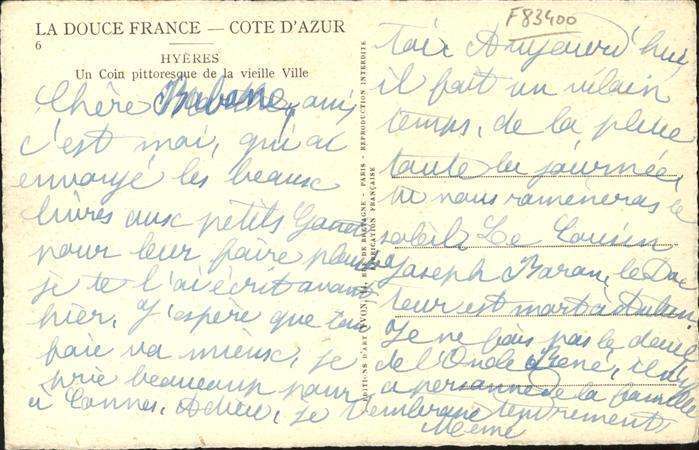 F83400
LA DOUCE FRANCE — COTE D'AZUR
6
HYÈRES
Un Coin pittoresque de la vieille Ville
Chère
c'est moi, qui ai
envoyé les beaux
livres aux petits
pour leur faire plaisir
je te l'ai écrit avant
hier, J'espère que ton
va mieux, je
prie beaucoup pour
à Cannes, Adieu, je t'embrasse tendrement
Mémé
toi. Aujourd'hui
il fait un vilain
temps, de la pluie
toute la journée,
tu nous ramèneras le
soleil. Le Cousin
Joseph Baron, le Doc
teur est mort à
Je ne fais pas le deuil
de l'Oncle René, il n'y
a personne de la famille
EDITIONS D'ART YVON, RUE DE BRETAGNE - PARIS - REPRODUCTION INTERDITE
FABRICATION FRANÇAISE